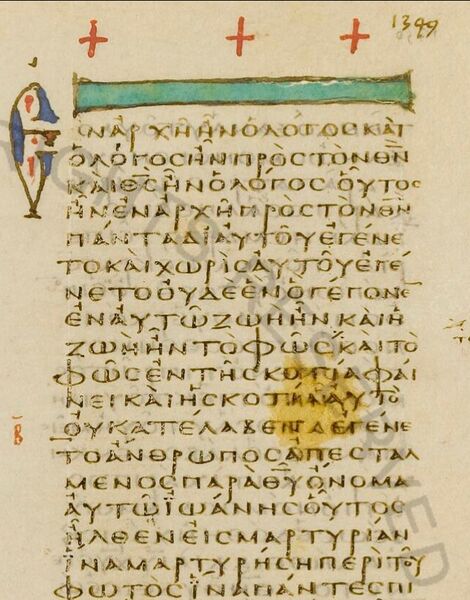 1349
ΕΝΑΡΧΗΗΝΟΛΟΓΟϹΚΑΙ
ΟΛΟΓΟϹΗΝΠΡΟϹΤΟΝΘ̅Ν̅
ΚΑΙΘ̅Ϲ̅ΗΝΟΛΟΓΟϹΟΥΤΟϹ
ΗΝΕΝΑΡΧΗΠΡΟϹΤΟΝΘ̅Ν̅
ΠΑΝΤΑΔΙΑΥΤΟΥΕΓΕΝΕ
ΤΟΚΑΙΧΩΡΙϹΑΥΤΟΥΕΓΕ
ΝΕΤΟΟΥΔΕΕΝΟΓΕΓΟΝΕ
ΕΝΑΥΤΩΖΩΗΗΝΚΑΙΗ
ΖΩΗΗΝΤΟΦΩϹΚΑΙΤΟ
ΦΩϹΕΝΤΗϹΚΟΤΙΑΦΑΙ
ΝΕΙΚΑΙΗϹΚΟΤΙΑΑΥΤΟ
Β̅
ΟΥΚΑΤΕΛΑΒΕΝΕΓΕΝΕ
ΤΟΑΝΘΡΩΠΟϹΑΠΕϹΤΑΛ
ΜΕΝΟϹΠΑΡΑΘ̅Υ̅ΟΝΟΜΑ
ΑΥΤΩΙΩΑΝΗϹΟΥΤΟϹ
ΗΛΘΕΝΕΙϹΜΑΡΤΥΡΙΑΝ
ΙΝΑΜΑΡΤΥΡΗϹΗΠΕΡΙΤΟΥ
ΦΩΤΟϹΙΝΑΠΑΝΤΕϹΠΙ